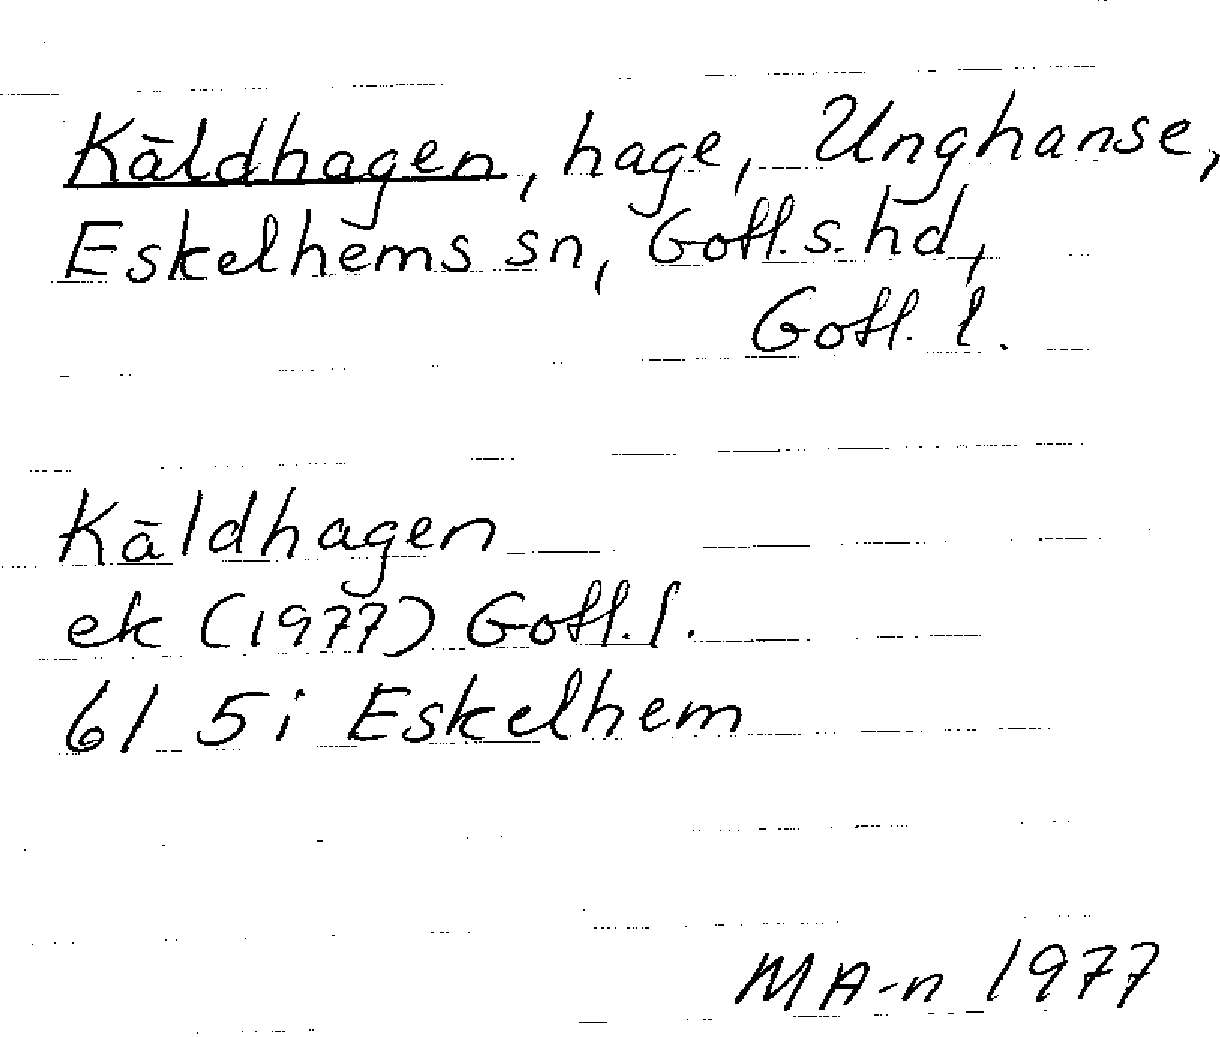 Käldhagen, hage, Unghanse,
Eskelhems sn, Gotl. s. hd,
Gotl. l.
Käldhagen
ek (1977) Gotl. l.
6I 5i Eskelhem
MA-n 1977